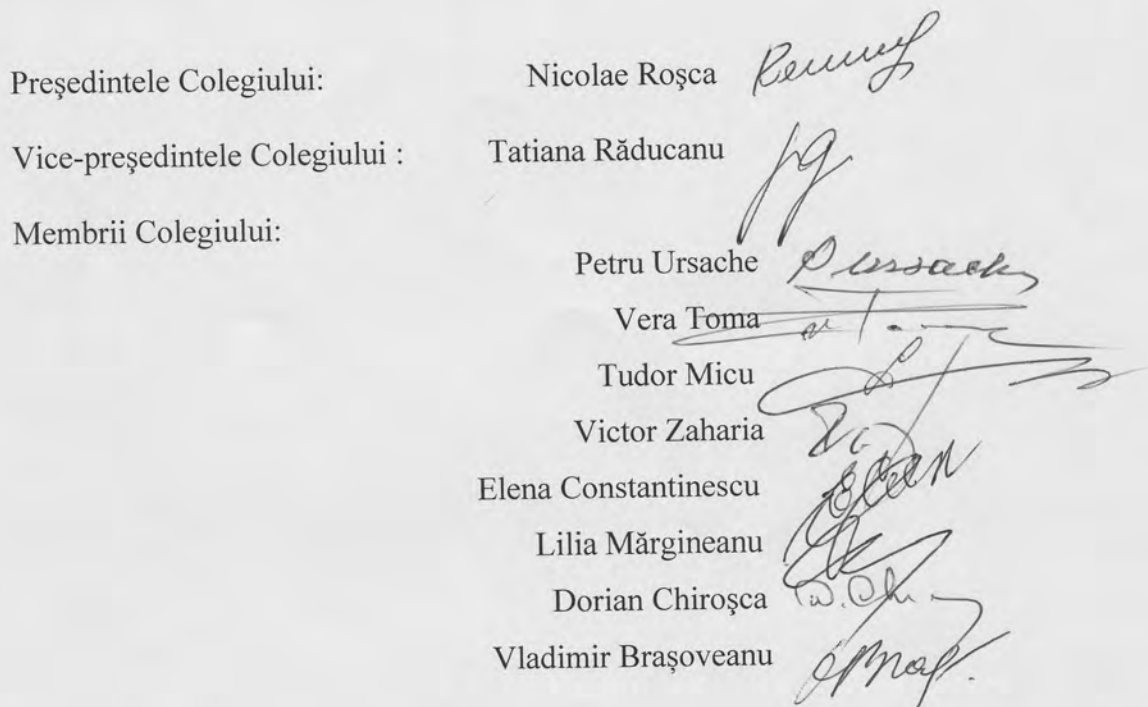 Preşedintele Colegiului: Nicolae Roşca
Vice-preşedintele Colegiului : Tatiana Răducanu
Membrii Colegiului:
Petru Ursache
Vera Toma
Tudor Micu
Victor Zaharia
Elena Constantinescu
Lilia Mărgineanu
Dorian Chiroşca
Vladimir Brașoveanu